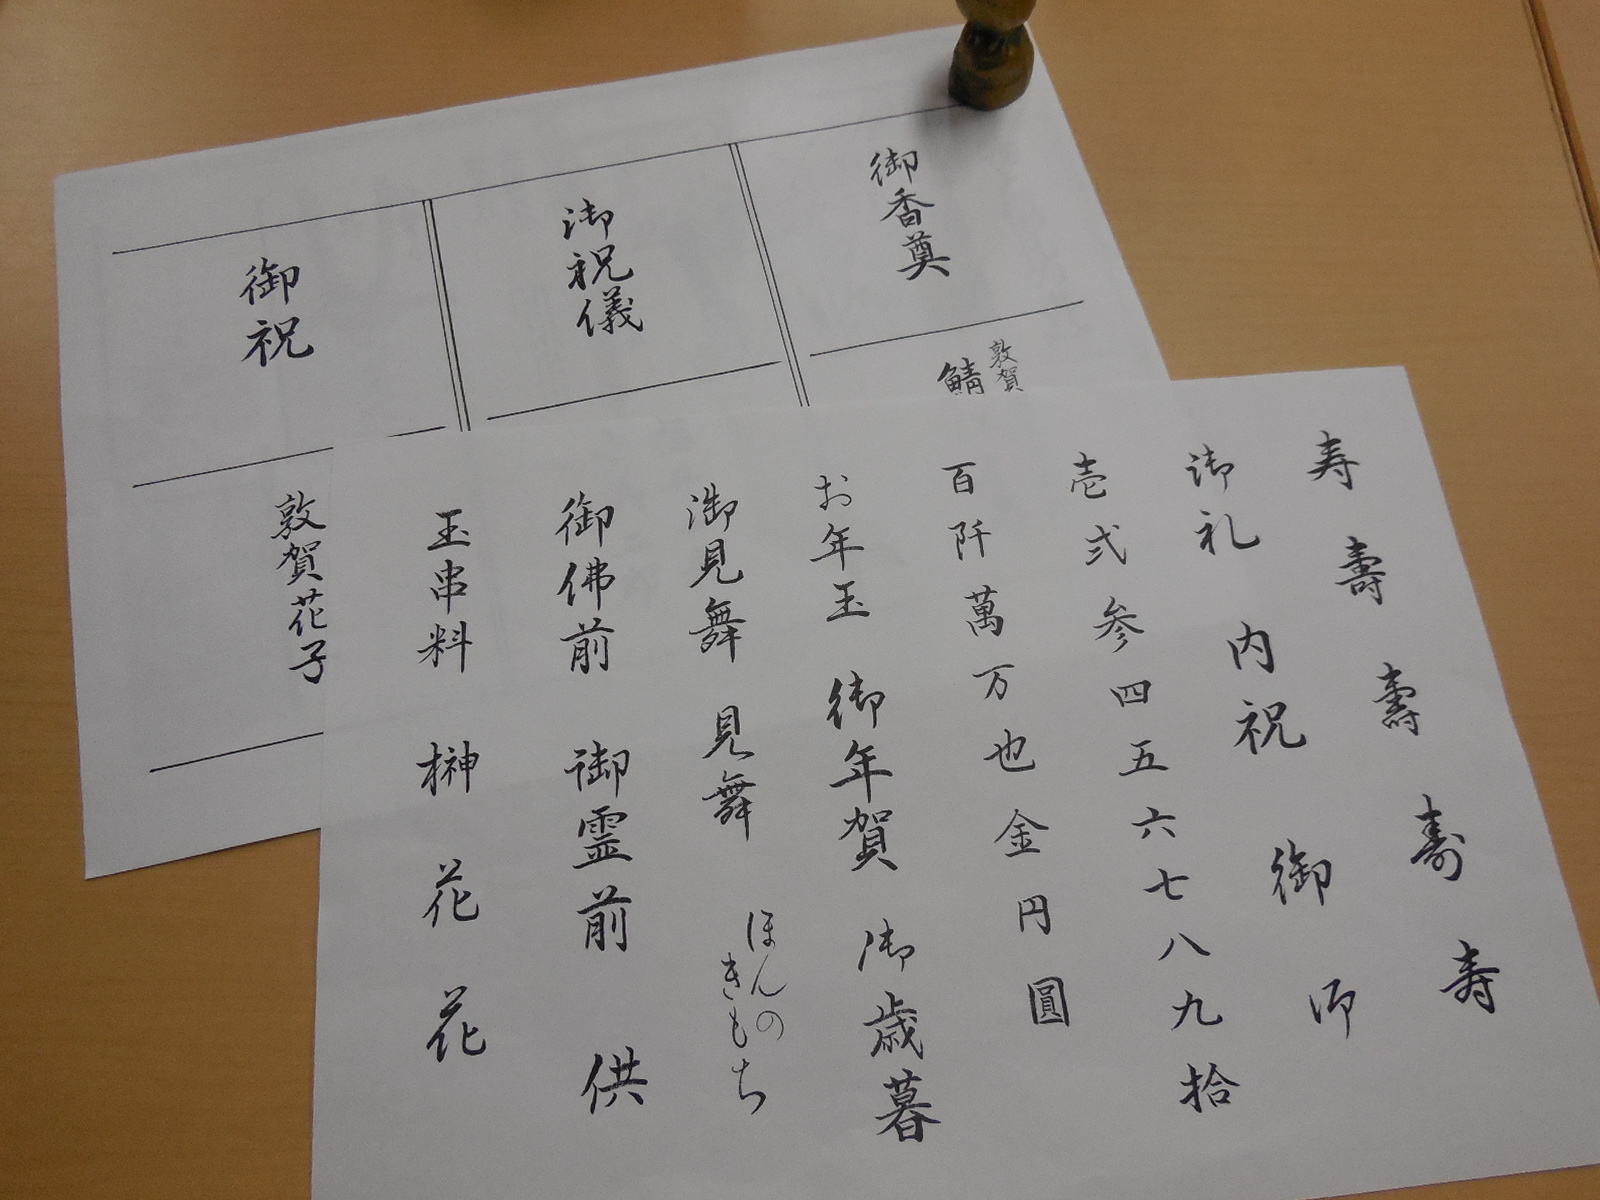 御香奠
敦賀
鯖
御祝儀
御祝
敦賀花子
寿 壽 壽 寿 寿
御礼 内祝 御 御
壱弐参四五六七八九拾
百阡萬万也金円圓
お年玉 御年賀 御歳暮
御見舞 見舞 ほんの
きもち
御佛前 御霊前 供
玉串料 榊 花 花